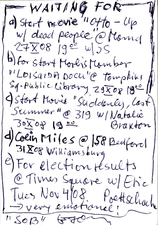 WAITING FOR
a) Start movie "Otto - Up
w/ dead people" @ Moma
27 X 08 19 00 w/ JS
b) for start Merlis Member
"LOISAIDA DOCU" @ Tompkins
Sq. Public Library 29 X 08 19
c) Start Movie "Suddenly, Last
Summer" @ 319 w/ Natalie
30 X 08 19 Braxton
d) Colin Miles @ 158
31 X 08 Williamsburg
e) For election results
@ Times Square w/ Eric
Tues Nov 4/08
→ very emotional!
"SOB"